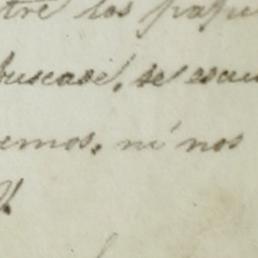 tre los pape
buscase, se escu
emos, ni nos